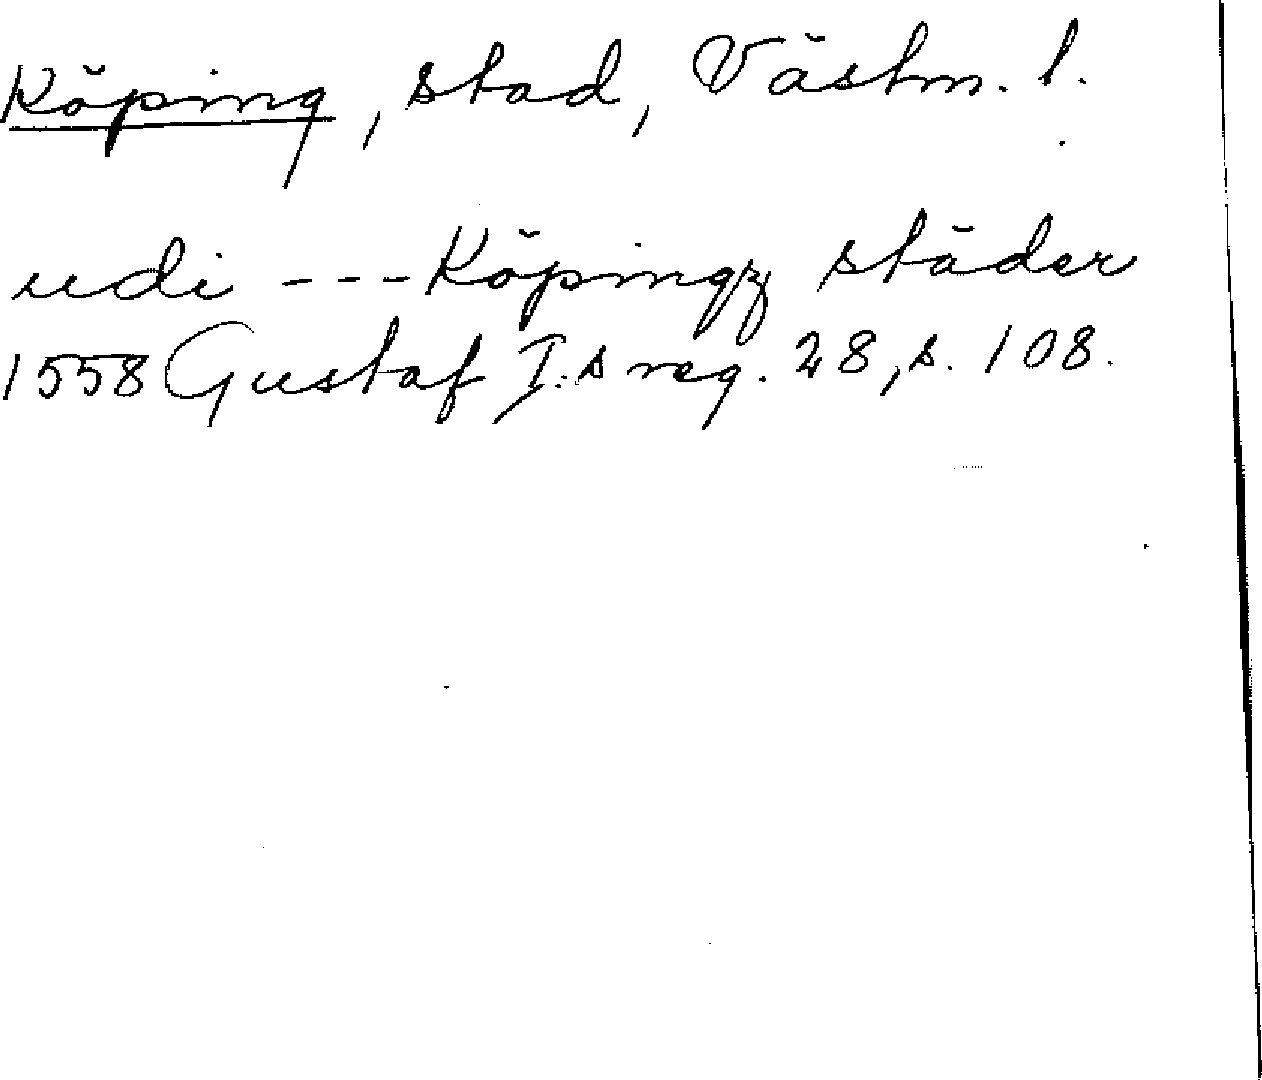 Köping, stad, Västm. l.
udi --- Köpingz städer
1558 Gustaf I:s reg. 28, s. 108.